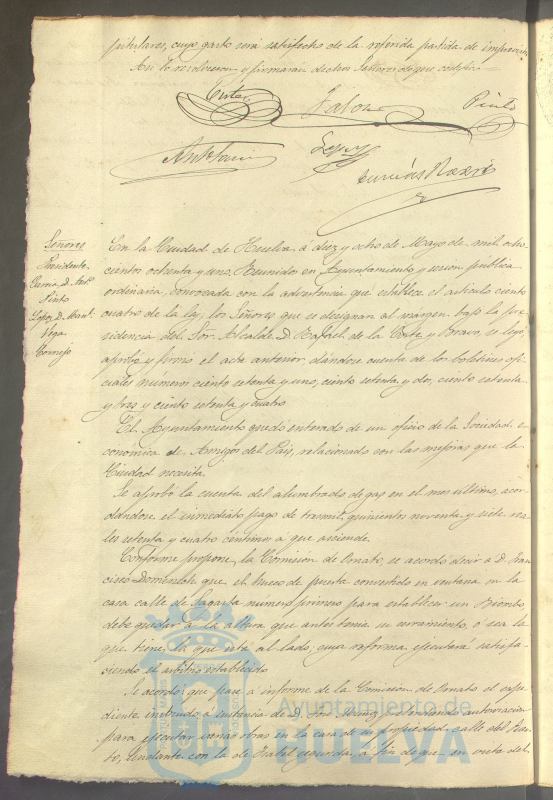 pitulares, cuyo gasto será satisfecho de la referida partida de imprevistos
Así lo resolvieron y firmarán dichos Señores de que certifico
Corte
Jalon
Pinto
Antolin
Lopez
Señores
Presidente
Garcia D. Antº
Pinto
Lopez D. Manl.
Vega
Cornejo
En la Ciudad de Huelva á diez y ocho de Mayo de mil ocho-
cientos ochenta y uno. Reunidos en Ayuntamiento y sesion pública
ordinaria, convocada con la advertencia que establece el articulo ciento
cuatro de la ley, los Señores que se designan al márgen, bajo la pre-
sidencia del Sor. Alcalde D. Rafael de la Corte y Bravo, se leyó,
aprobó y firmó el acta anterior, dándose cuenta de los boletines ofi-
ciales números ciento setenta y uno, ciento setenta y dos, ciento setenta
y tres y ciento setenta y cuatro.
El Ayuntamiento quedó enterado de un oficio de la Sociedad e-
conómica de Amigos del País, relacionado con las mejoras que la
Ciudad necesita.
Se aprobó la cuenta del alumbrado de gas en el mes último, acor-
dándose el inmediato pago de tresmil, quinientos noventa y siete rea-
les setenta y cuatro céntimos a que asciende.
Conforme propone la Comision de Ornato, se acordó decir á D. Fran-
cisco Domenech que el hueco de puerta convertido en ventana en la
casa calle de Sagasta número primero para establecer un Biombo,
debe quedar á la altura que antes tenia su cerramiento, ó sea la
que tiene la que está al lado, cuya reforma ejecutará satisfa-
ciendo el arbitrio establecido.
Se acordó que pase á informe de la Comision de Ornato el espe-
diente instruido á instancia de D. José Muñoz pretendiendo autorizacion
para ejecutar varias obras en la casa de su propiedad calle del Puer-
to, lindante con la de Isabel segunda, á fin de que en vista del
Ayuntamiento de
HUELVA